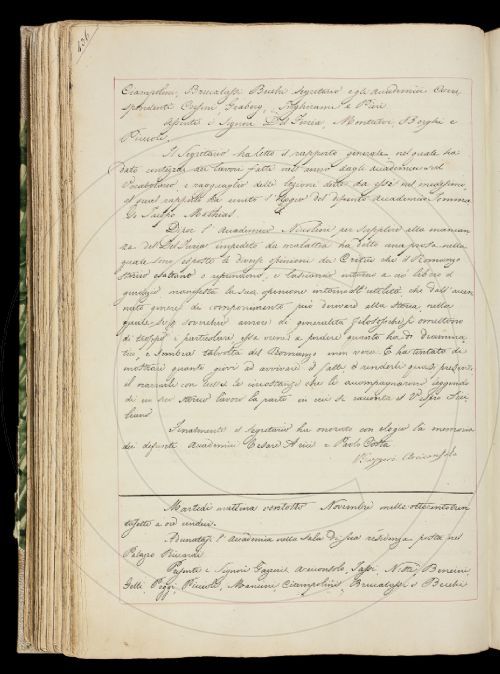 436
Ciampolini, Brucalassi Becchi segretario e gli accademici Corri
spondenti Cesari Graberg, Inghirami e Pieri
Assenti i Signori Del Furia, Montalvi, Borghi e
Piccioli.
Il Segretario ha letto il rapporto generale nel quale ha
dato contezza dei lavori fatti nell'anno dagli accademici sul
Vocabolario, e ragguaglio delle lezioni dette da essi nel medesimo,
al qual rapporto ha unito l'elogio del defunto Accademico Tommaso
Giacopo Mathias.
Dipoi l'Accademico Niccolini per supplire alla mancan
za del Del Furia impedito da malattia ha letto una prosa nella
quale ha esposto le diverse opinioni dei Critici che il Romanzo
storico esaltano o reprimono, e lasciando intorno a ciò libero il
giudizio manifesta la sua opinione intorno all'utilità che dall'accen
nato genere di componimento può derivare alla storia nella
quale se per soverchio amore di generalità filosofiche si omettono
di troppo i particolari essa viene a perdere quanto ha di dramma
tico, e sembra talvolta del Romanzo men vera. E ha tentato di
mostrare quanto giovi ad avvivare il fatto e renderlo quasi presente,
il narrarle con tutte le circostanze che lo accompagnarono leggendo
di un suo storico lavoro la parte in cui si racconta il Vespro Sici
liano
Finalmente il segretario ha onorato con elogio la memoria
dei defunti Accademici Cesare Arici e Paolo Costa
Ruggero
Martedì mattina ventotto Novembre mille ottocentotren
tasette a ore undici.
Adunatasi l'Accademia nella sala di sua residenza posta nel
Palazzo Riccardi
Presenti i Signori Gazzeri, Arcangioli, Tassi, Nesti, Bencini,
Gelli, Poggi, Piccioli, Mancini, Ciampolini, Brucalassi e Becchi